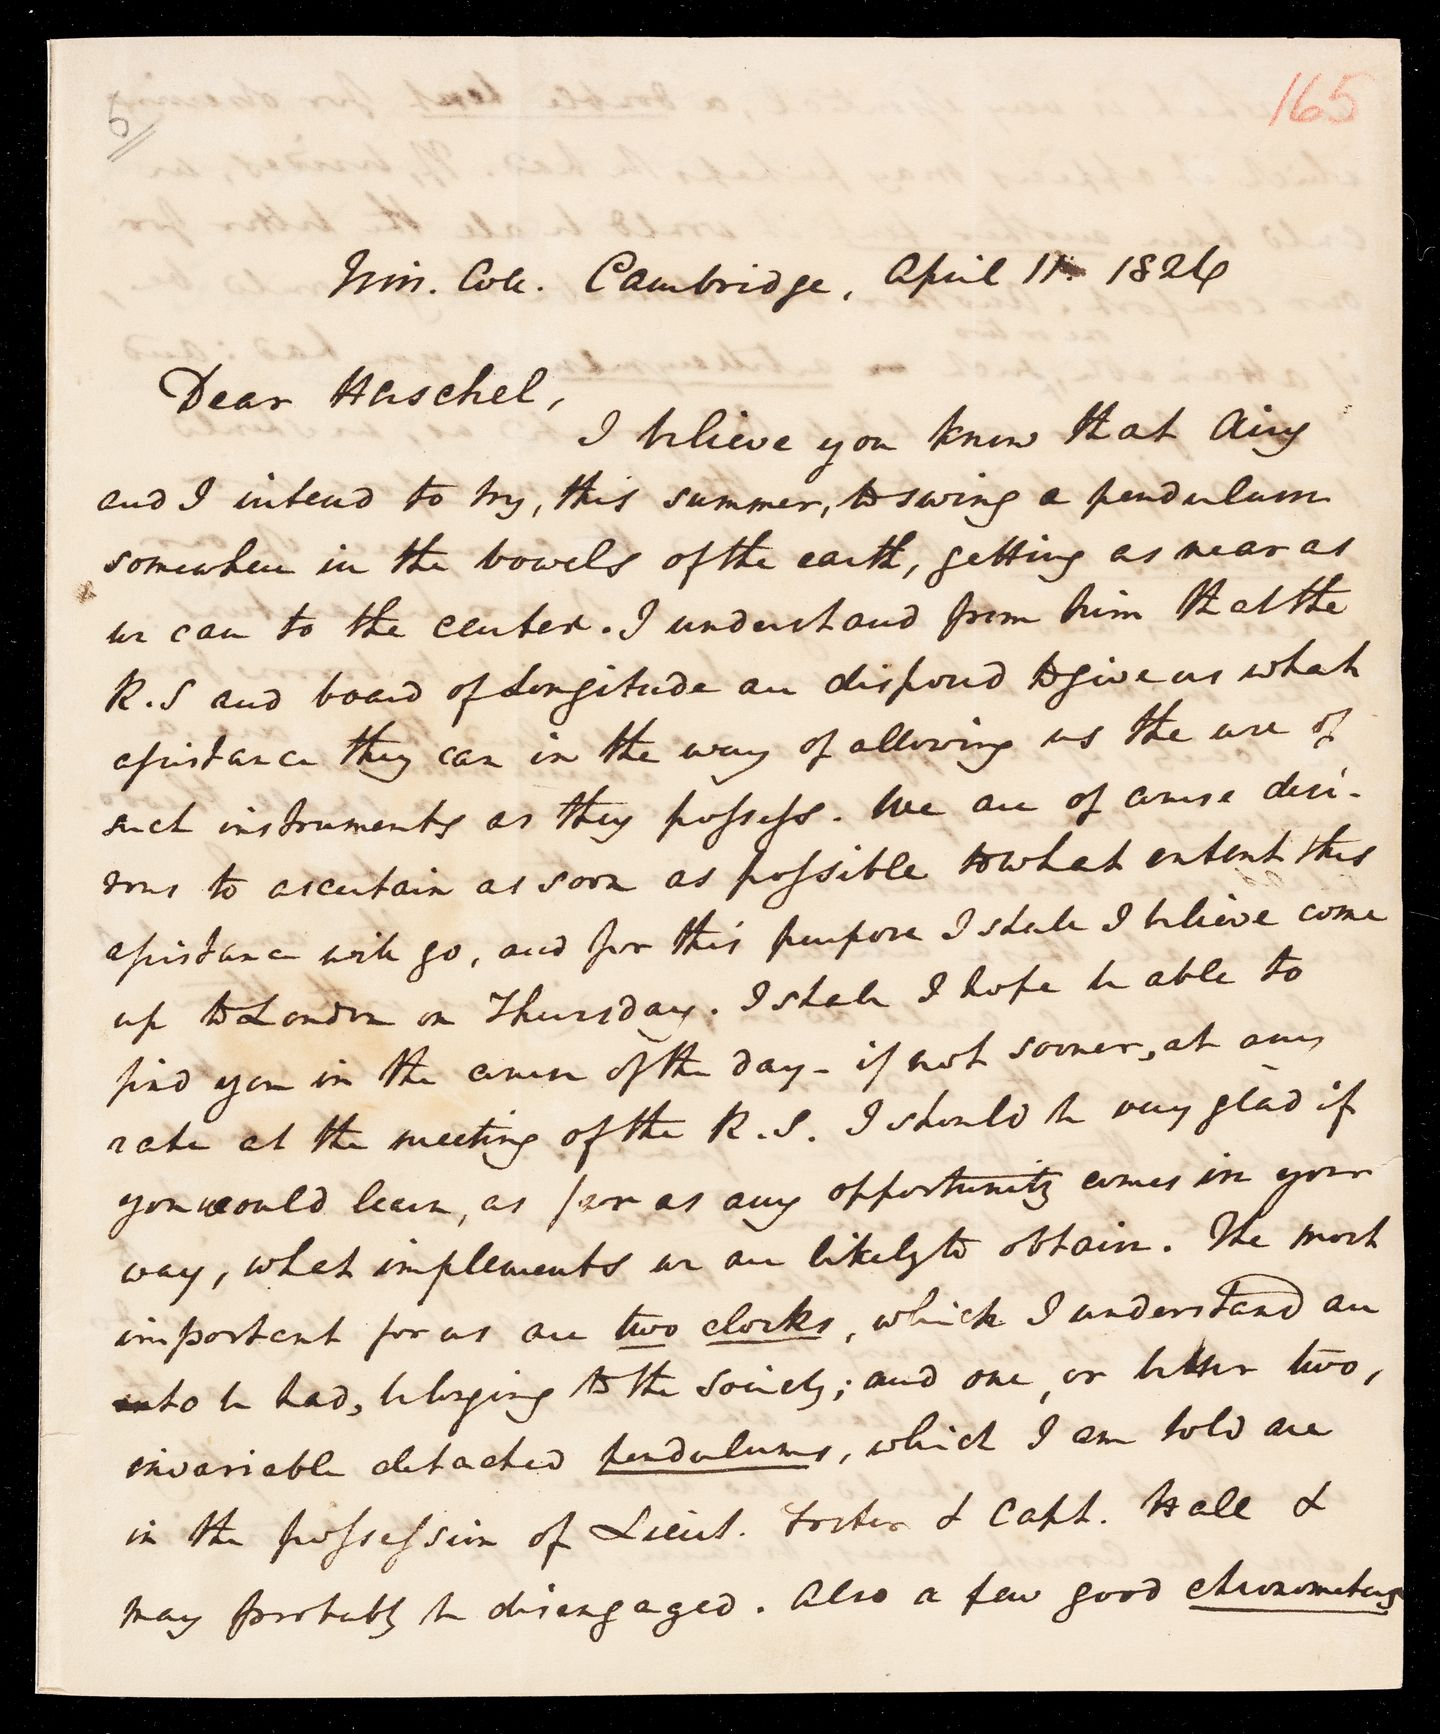 165
5
Trin. Coll. Cambridge, April 11. 1826
Dear Herschel,
I believe you know that Airy
and I intend to try, this summer, to swing a pendulum
somewhere in the bowels of the earth, getting as near as
we can to the center. I understand from him that the
R.S and board of Longitude are disposed to give us what
assistance they can in the way of allowing us the use of
such instruments as they possess. We are of course desi-
rous to ascertain as soon as possible to what extent this
assistance will go, and for this purpose I shall I believe come
up to London on Thursday. I shall I hope be able to
find you in the course of the day - if not sooner, at any
rate at the meeting of the R.S. I should be very glad if
you would learn, as far as any opportunity comes in your
way, what implements we are likely to obtain. The most
important for us are two clocks, which I understand are
to be had, belonging to the Society; and one, or better two,
invariable detached pendulums, which I am told are
in the possession of Lieut. Foster & Capt. Hall &
may probably be disengaged. Also a few good chronometers